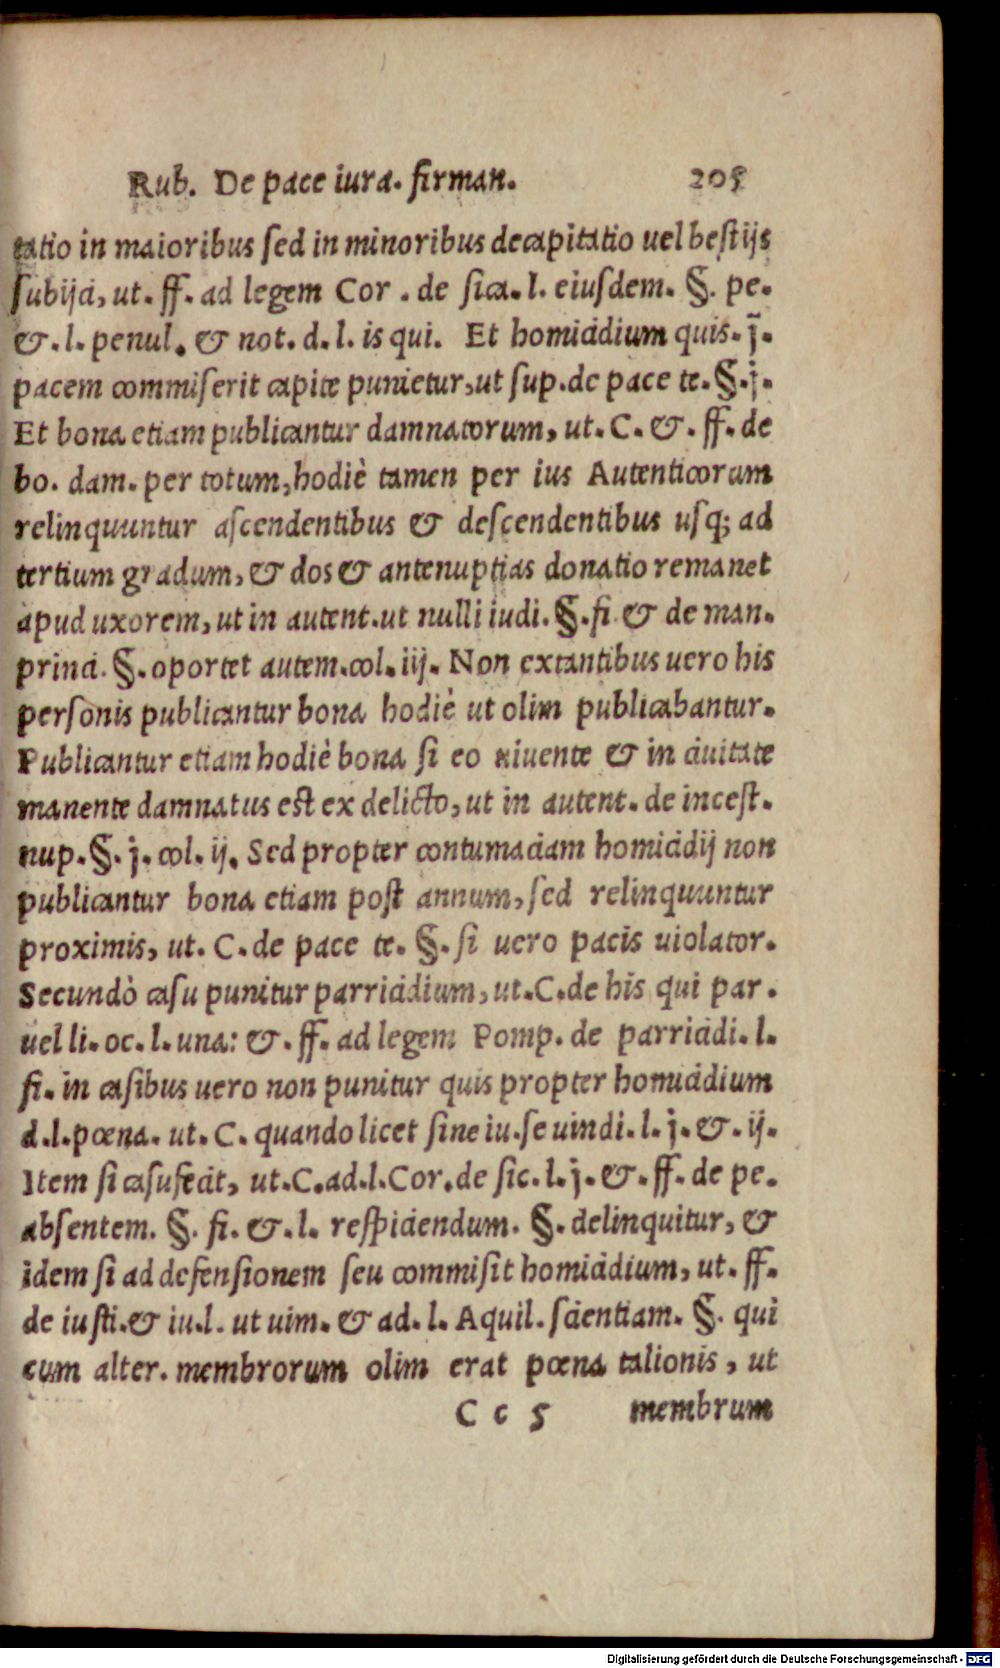 Rub. De pace iura. firman. 205
tatio in maioribus sed in minoribus decapitatio uel bestijs
subijci, ut. ff. ad legem Cor . de sica. l. eiusdem. §. pe.
&. l. penul. & not. d. l. is qui. Et homicidium quis. j̃.
pacem commiserit capite punietur, ut sup. de pace te. §. j.
Et bona etiam publicantur damnatorum, ut. C. &. ff. de
bo. dam. per totum, hodiè tamen per ius Autenticorum
relinquuntur ascendentibus & descendentibus usq; ad
tertium gradum, & dos & antenuptias donatio remanet
apud uxorem, ut in autent. ut nulli iudi. §. fi & de man.
princi. §. oportet autem. col. iij. Non extantibus uero his
personis publicantur bona hodiè ut olim publicabantur.
Publicantur etiam hodiè bona si eo uiuente & in ciuitate
manente damnatus est ex delicto, ut in autent. de incest.
nup. §. j. col. ij. Sed propter contumaciam homicidij non
publicantur bona etiam post annum, sed relinquuntur
proximis, ut. C. de pace te. §. si uero pacis uiolator.
Secundò casu punitur parricidium, ut. C. de his qui par.
uel li. oc. l. una: &. ff. ad legem Pomp. de parricidi. l.
fi. in casibus uero non punitur quis propter homicidium
d. l. pœna. ut. C. quando licet sine iu. se uindi. l. j. &. ij.
Item si casu fecit, ut. C. ad. l. Cor. de sic. l. j. &. ff. de pe.
absentem. §. fi. &. l. respiciendum. §. delinquitur, &
idem si ad defensionem seu commisit homicidium, ut. ff.
de iusti. & iu. l. ut uim. & ad. l. Aquil. scientiam. §. qui
cum alter. membrorum olim erat pœna talionis, ut
C c 5 membrum
Digitalisierung gefördert durch die Deutsche Forschungsgemeinschaft - DFG